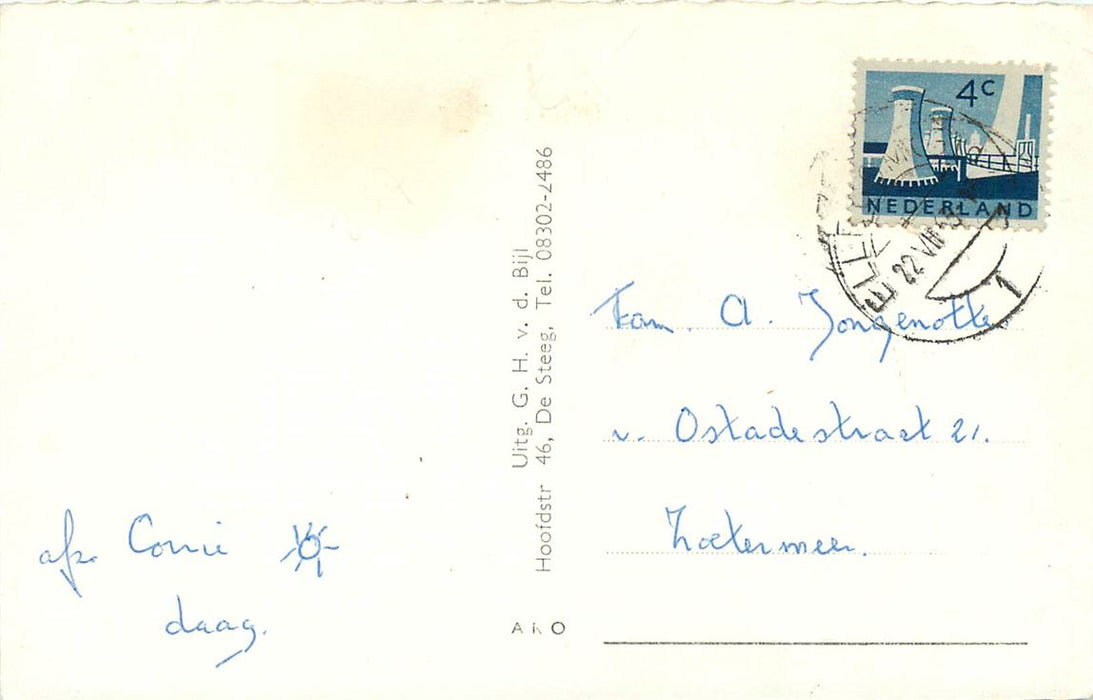 4c
NEDERLAND
22 VII
1
Fam. A. Jongenotter
v. Ostadestraat 21.
Zoetermeer.
Uitg. G. H. v. d. Bijl
Hoofdstr 46, De Steeg, Tel. 08302-2486
afz. Corrie
daag.